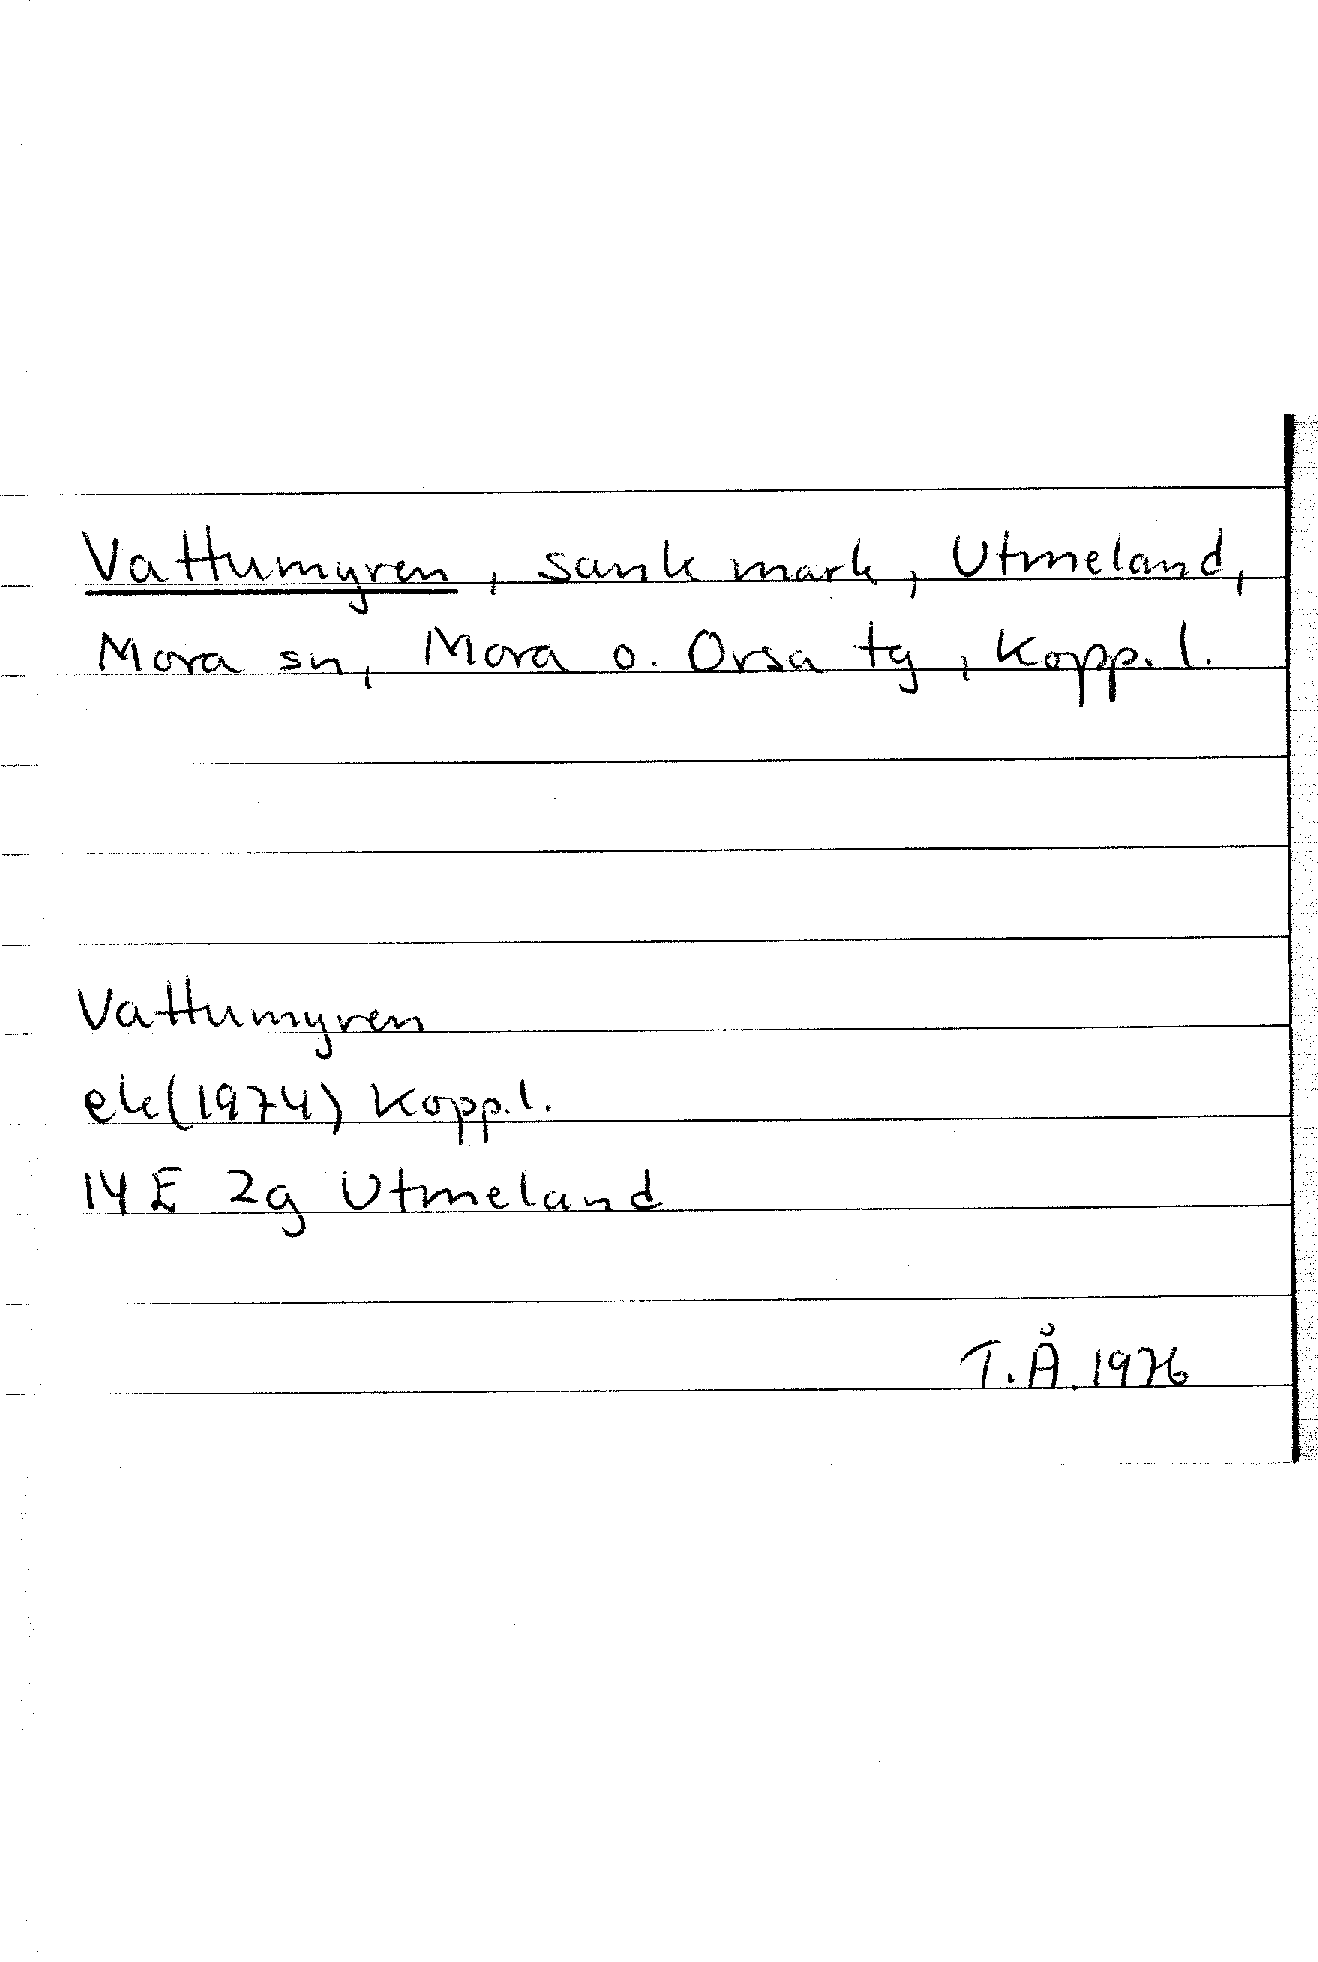 Vattumyren, sank mark, Utmeland,
Mora sn, Mora o. Orsa tg, Kopp. l.
Vattumyren
ek(1974) Kopp. l.
14 E 2g Utmeland
T. Å. 1976